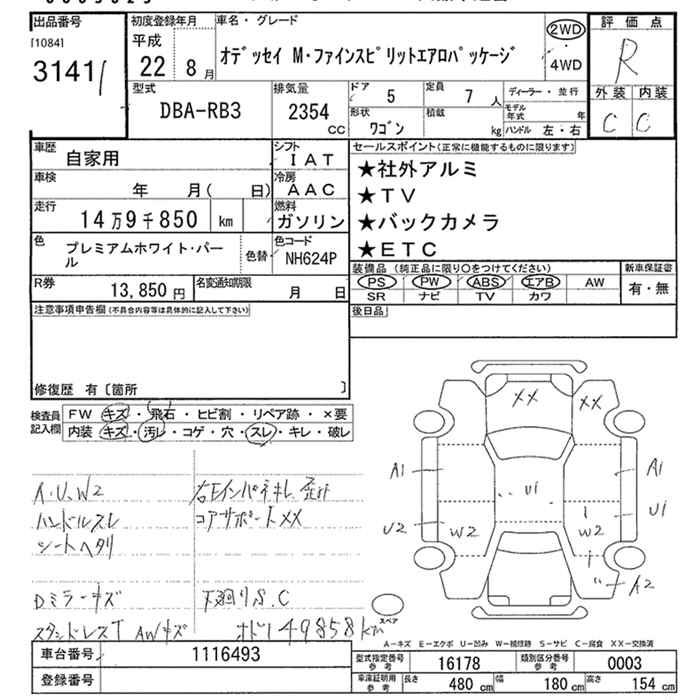 出品番号 初度登録年月 車名・グレード 2WD 評価点
[1084] 平成 ・
3141 22年 8月 オデッセイ M・ファインスピリットエアロパッケージ 4WD R
型式 排気量 ドア 5 定員 7人 ディーラー・並行 外装 内装
DBA-RB3 2354 CC 形状 ワゴン 積載 kg モデル年式 年 C C
ハンドル 左・右
車歴 自家用 シフト IAT セールスポイント(正常に機能するものに限ります)
車検 年 月( 日) 冷房 AAC ★社外アルミ
走行 14万9千850 km 燃料 ガソリン ★TV
色 プレミアムホワイト・パール 色替 色コード NH624P ★バックカメラ
★ETC
R券 13,850円 名変通知期限 月 日 装備品 (純正品に限り○をつけてください) 新車保証書
PS PW ABS エアB AW 有・無
SR ナビ TV カワ
注意事項申告欄(不具合内容等は具体的に記入して下さい) 後日品
修復歴 有〔箇所 〕
検査員 FW キズ・飛石・ヒビ割・リペア跡・×要
記入欄 内装 キズ・汚レ・コゲ・穴・スレ・キレ・破レ
XX XX
A1 A1
U1 U1
U2 W2 W2
A2
A.U.W2
ハンドルスレ コアサポートXX
シートヘタリ
Dミラーキズ 下廻りS.C
AWキズ 149858km
スペア
A－キズ E－エクボ U－凹み W－補修跡 S－サビ C－腐食 XX－交換済
車台番号 1116493 型式指定番号 参考 16178 類別区分番号 参考 0003
登録番号 車庫証明用 参考 長さ 480cm 幅 180cm 高さ 154cm